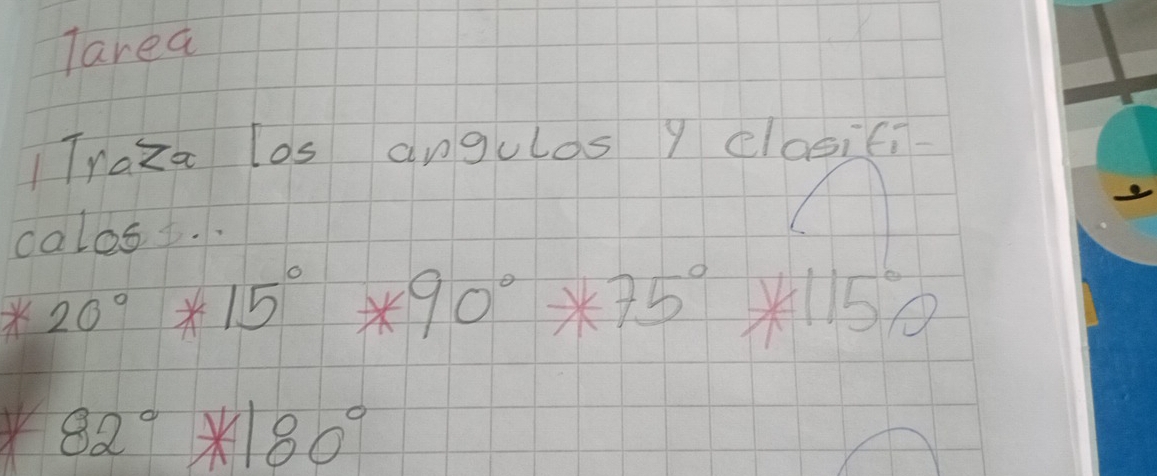 Tarea
1 Traza los angulos y clasifi-
calos :..
* 20° * 15° * 90° * 75° * 115°
* 82° * 180°